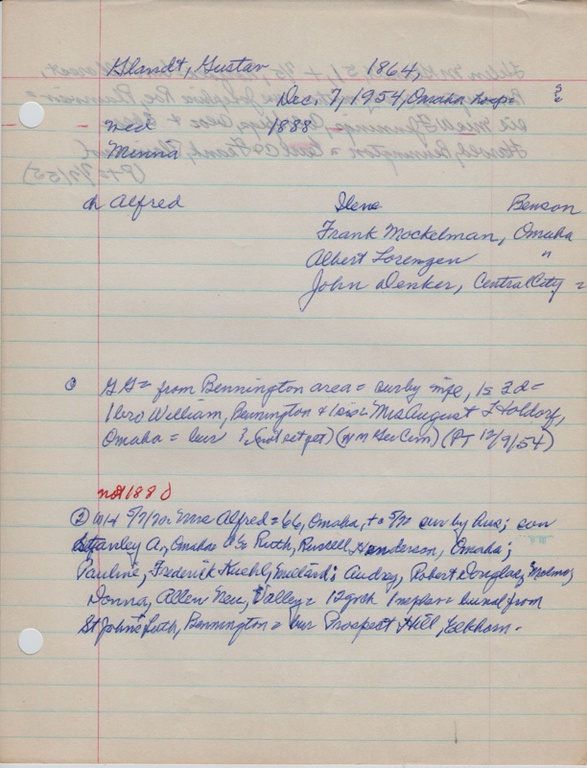 Glandt, Gustav 1864,
Dec. 7, 1954, Omaha hosp=
- wed 1888
Minna
ch Alfred Ilene Benson
Frank Mockelman, Omaha
Albert Lorenzen "
John Denker, Central City =
① GG= from Bennington area = surby wife, 1s 3d=
1bro William, Bennington & 1sis= Mrs August F Holdorf,
Omaha = bur ? (not set yet) (W M Ger Cem) (PT 12/9/54)
not 1880
② WH 5/7/70= Mrs Alfred=66, Omaha, to 5/70 surby hus; son
Stanley A., Omaha= Ruth, Russell Henderson, Omaha;
Pauline, Frederick Kuehl, Millard; Audrey, Robert Douglas,
Donna, Allen Neu, Valley= 12grch 1nephew= burial from
St John's Luth, Bennington= bur Prospect Hill, Elkhorn.